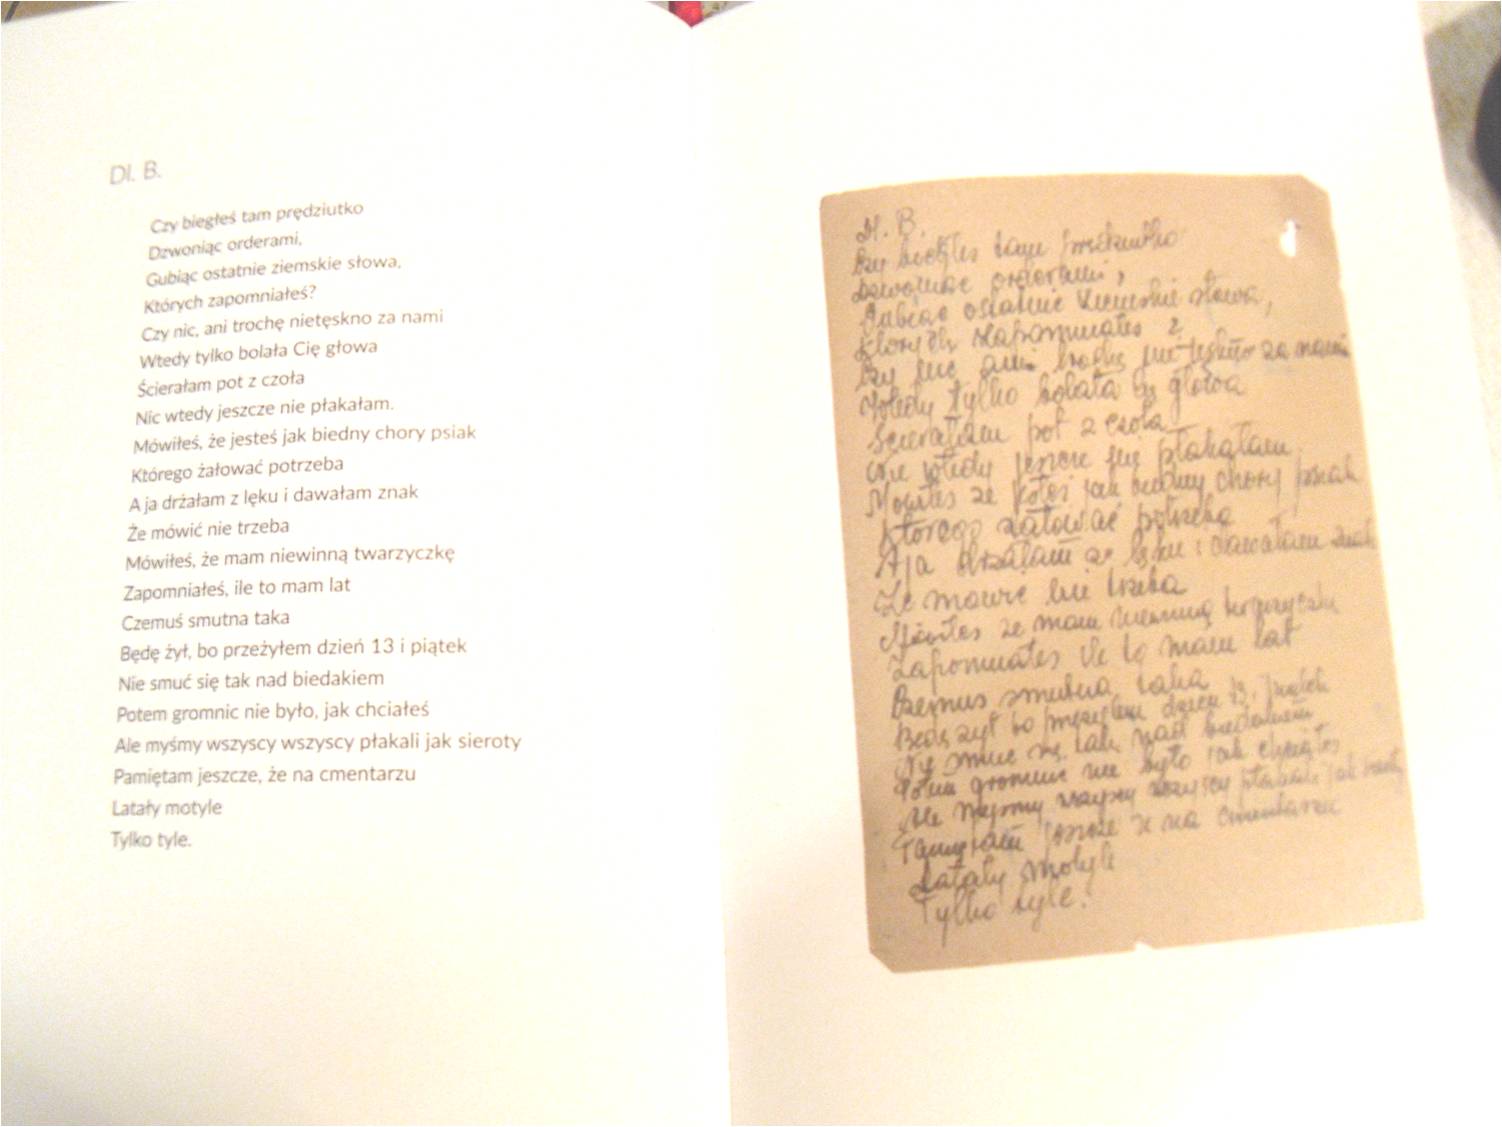 Dl. B.
Czy biegłeś tam prędziutko
Dzwoniąc orderami,
Gubiąc ostatnie ziemskie słowa,
Których zapomniałeś?
Czy nic, ani trochę nietęskno za nami
Wtedy tylko bolała Cię głowa
Ścierałam pot z czoła
Nic wtedy jeszcze nie płakałam.
Mówiłeś, że jesteś jak biedny chory psiak
Którego żałować potrzeba
A ja drżałam z lęku i dawałam znak
Że mówić nie trzeba
Mówiłeś, że mam niewinną twarzyczkę
Zapomniałeś, ile to mam lat
Czemuś smutna taka
Będę żył, bo przeżyłem dzień 13 i piątek
Nie smuć się tak nad biedakiem
Potem gromnic nie było, jak chciałeś
Ale myśmy wszyscy wszyscy płakali jak sieroty
Pamiętam jeszcze, że na cmentarzu
Latały motyle
Tylko tyle.
Dl. B.
Czy biegłeś tam prędziutko
Dzwoniąc orderami,
Gubiąc ostatnie ziemskie słowa,
Których zapomniałeś?
Czy nic ani trochę nietęskno za nami
Wtedy tylko bolała Cię głowa
Ścierałam pot z czoła
Nic wtedy jeszcze nie płakałam
Mówiłeś że jesteś jak biedny chory psiak
Którego żałować potrzeba
A ja drżałam z lęku i dawałam znak
Że mówić nie trzeba
Mówiłeś że mam niewinną twarzyczkę
Zapomniałeś ile to mam lat
Czemuś smutna taka
Będę żył bo przeżyłem dzień 13. piątek
Nie smuć się tak nad biedakiem
Potem gromnic nie było jak chciałeś
Ale myśmy wszyscy wszyscy płakali jak sieroty
Pamiętam jeszcze że na cmentarzu
Latały motyle
Tylko tyle.